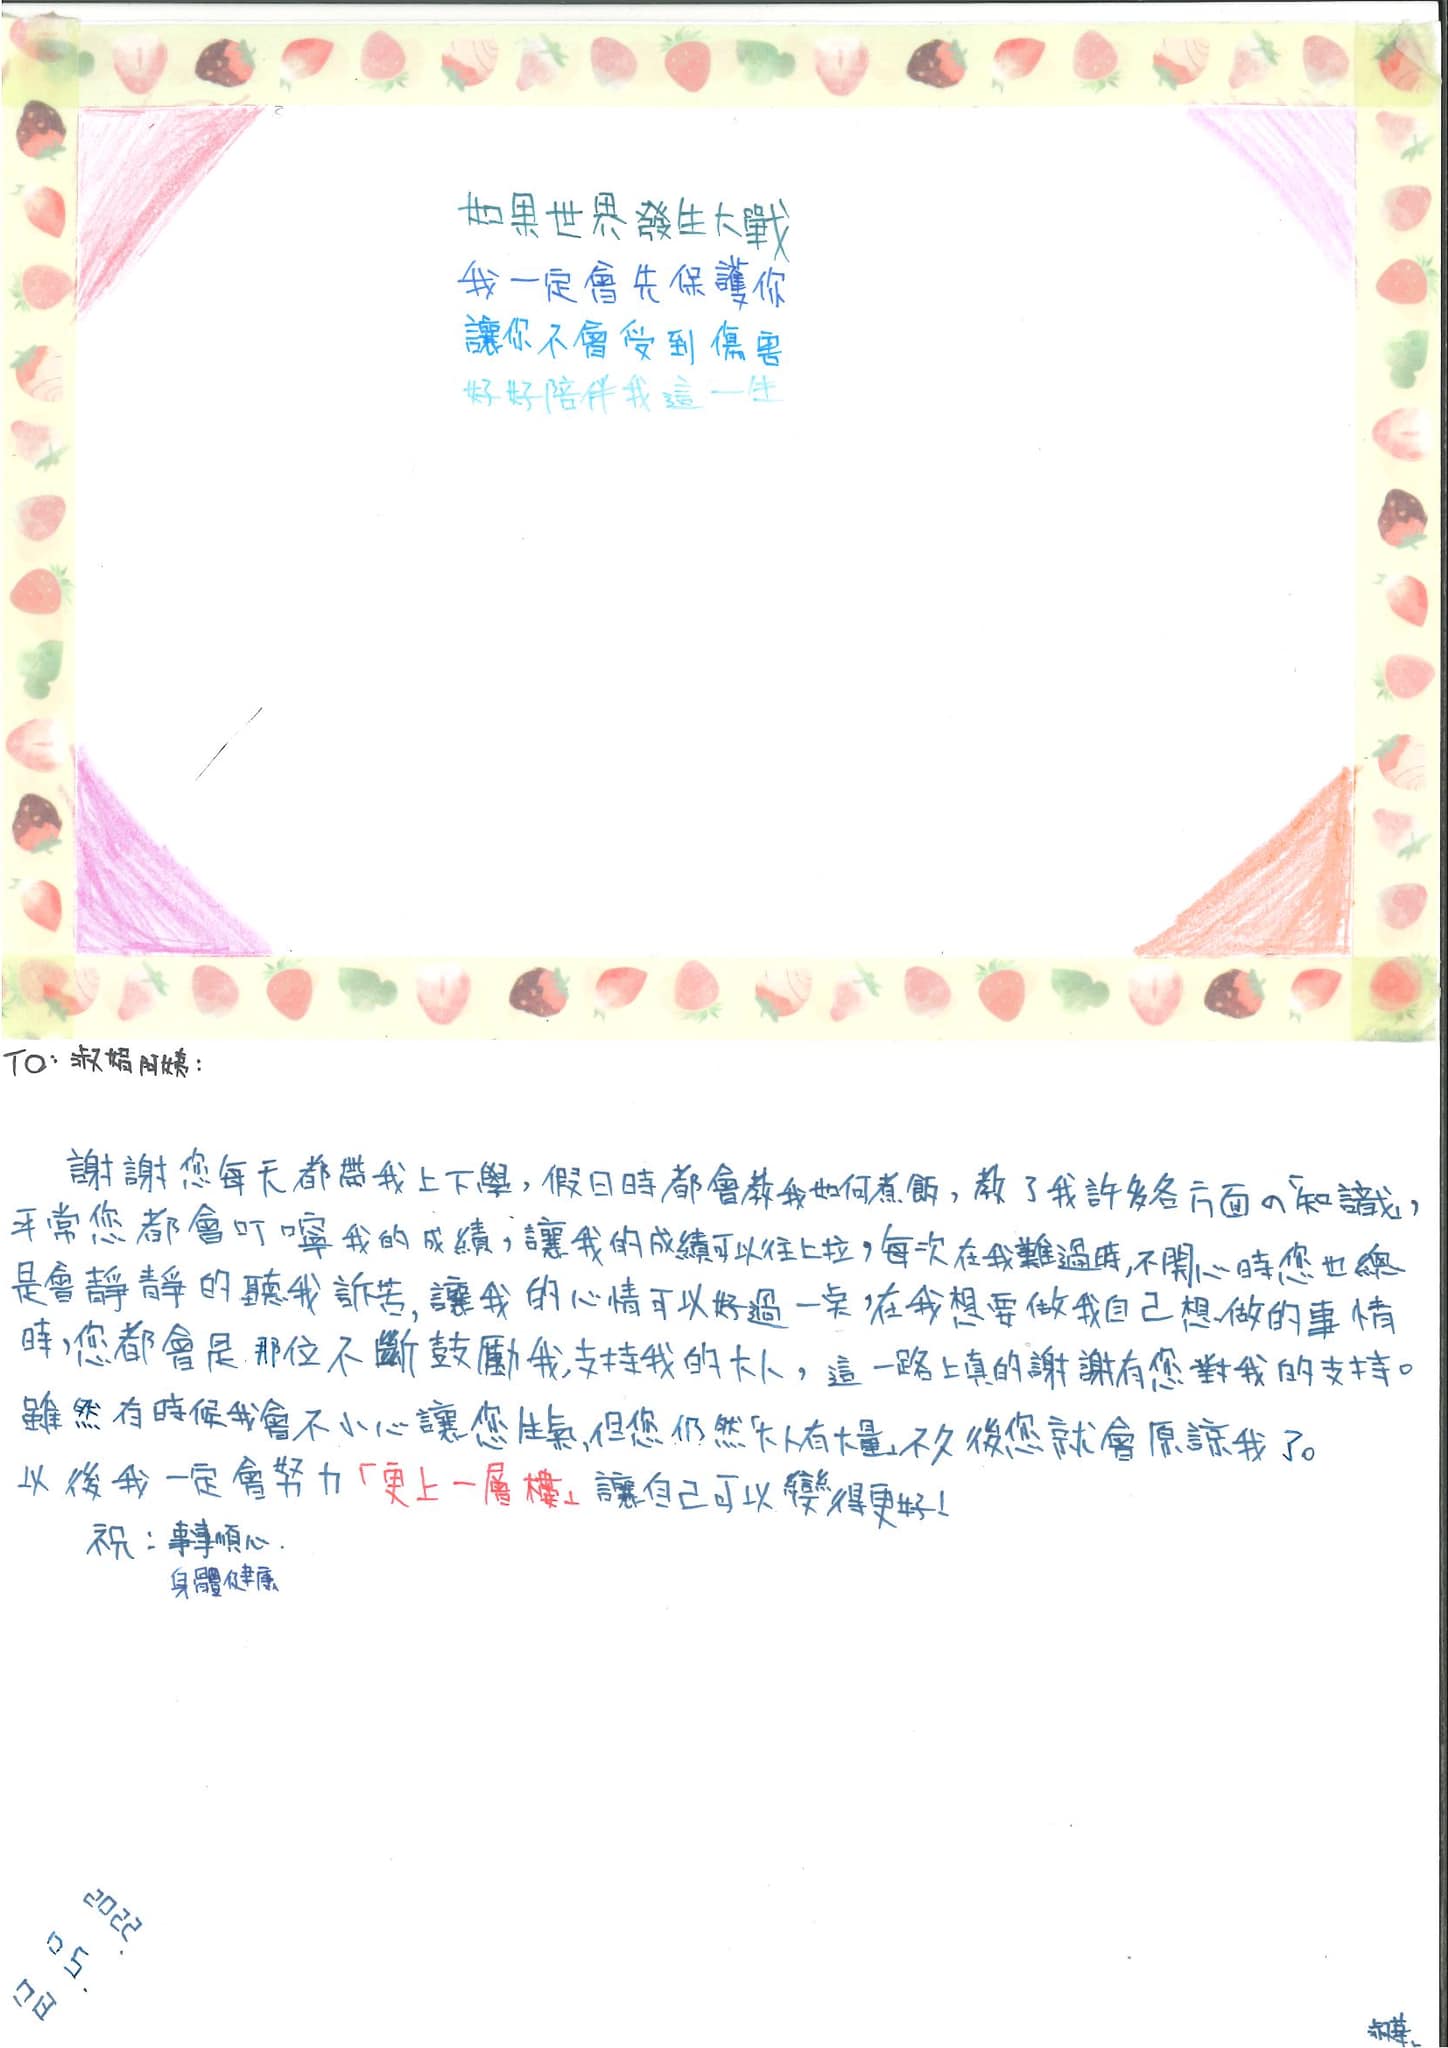 如果世界發生大戰
我一定會先保護你
讓你不會受到傷害
好好陪伴我這一生
TO: 淑娟阿姨:
謝謝您每天都帶我上下學,假日時都會教我如何煮飯,教了我許多各方面の「知識」,
平常您都會叮嚀我的成績,讓我的成績可以往上拉,每次在我難過時,不開心時您也總
是會靜靜的聽我訴苦,讓我的心情可以好過一点,在我想要做我自己想做的事情
時,您都會是那位不斷鼓勵我,支持我的大人,這一路上真的謝謝有您對我的支持。
雖然有時候我會不小心讓您生氣,但您仍然「大人有大量」不久後您就會原諒我了。
以後我一定會努力「更上一層樓」讓自己可以變得更好!
祝:事事順心.
身體健康
2022.
05.
08